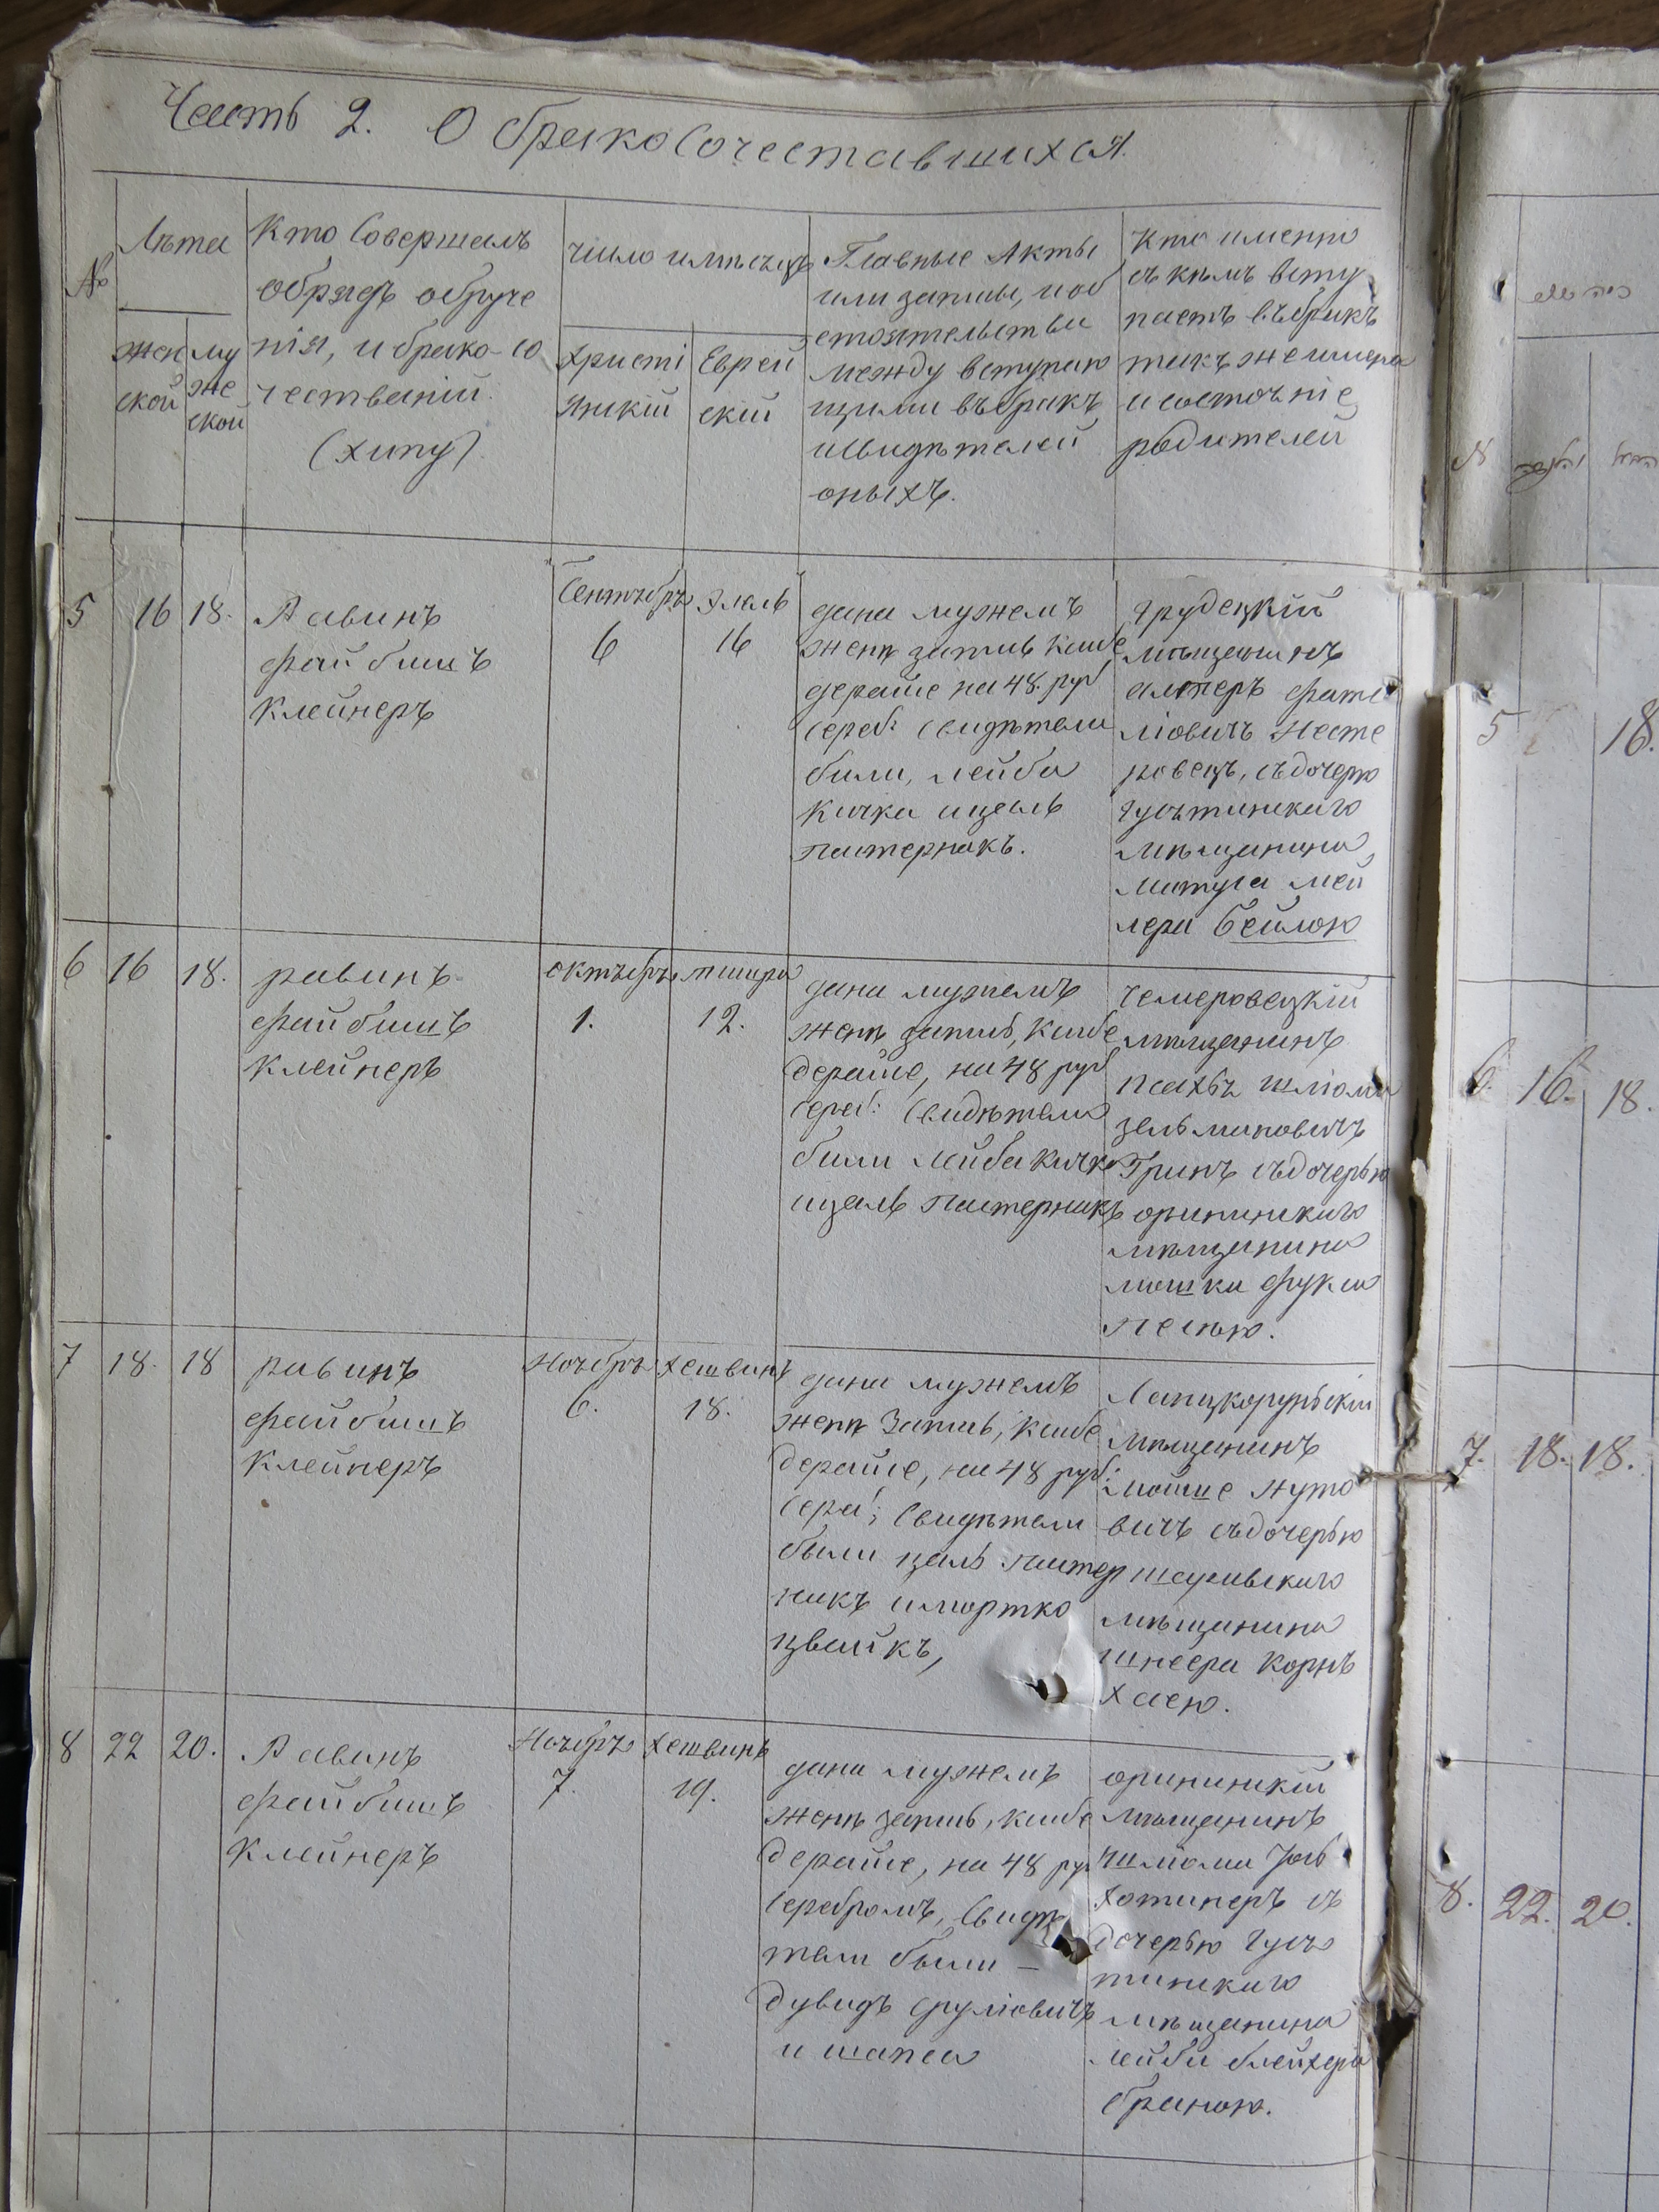 Часть 2. О бракосочетавшихся.
№
Лѣта
женской
мужеской
Кто Совершалъ
обрядъ обруче
нія, и брако-со
честваній.
(хупу)
число и мѣсяцъ
Христі
янскій
Еврей
скій
Главные Акты
или записи, и об
стоятельства
между вступаю
щими въ бракъ
и свидѣтелей
оныхъ.
Кто именно
съ кѣмъ всту
паетъ въ бракъ
такъ же имена
и состояніе
родителей
5
16
18.
Равинъ
файбишъ
Клейнеръ
Сентябрь
6
Элюль
16
дана мужемъ
женѣ запись каибе
дерайсе на 48. руб
сереб: Свидѣтели
были, лейба
Кичка ицель
пастернакъ.
грудецкій
мѣщанинъ
алтеръ
ліовичъ Несте
ровецъ, съ дочерю
гусятинскаго
мѣщанина
мей
лера Бейлою
6
16
18.
равинъ
файбишъ
Клейнеръ
октябрь
1.
тишри
12.
дана мужемъ
женѣ запись, каибе
дерайсе, на 48 руб
сереб: Свидѣтели
были лейба кичка
ицель пастернакъ
Чемеровецкій
мѣщанинъ
шліома
зельмановичъ
Гринъ съ дочерью
орининскаго
мѣщанина
мошка фукса
песею.
7
18.
18
равинъ
файбишъ
Клейнеръ
Ноябрь
6.
хешвинъ
18.
дана мужемъ
женѣ Запись, каибе
дерайсе, на 48 руб:
сереб; Свидѣтели
были цаль пастер
накъ и мортко
цвайкъ,
Ланцкорунскій
мѣщанинъ
мойше нуто
вичъ съ дочерью
мѣщанина
шнеера корнъ
хаею.
8
22
20.
Равинъ
файбишъ
Клейнеръ
Ноябрь
7.
хешвинъ
19.
дана мужемъ
женѣ запись, каибе
дерайсе, на 48 руб
серебромъ, Свидѣ
тели были –
дувидъ сруліовичъ
и шапса
орининскій
мѣщанинъ
шліома
хотинеръ съ
дочерью гуся
тинскаго
мѣщанина
лейби блейхера
браною.
№
5
18.
6.
16.
18.
7.
18.
18.
8.
22.
20.